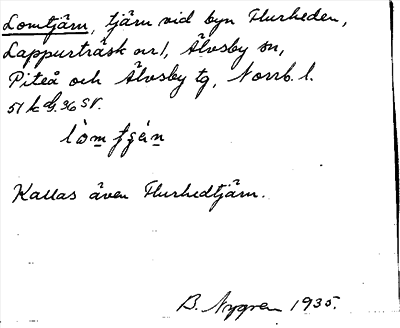 Lomtjärn, tjärn vid byn Flurheden,
Lappurträsk nr 1, Älvsby sn,
Piteå och Älvsby tg, Norrb. l.
51 k bl. 36 SV.
Kallas även Flurhedtjärn.
B. Nygren 1935.